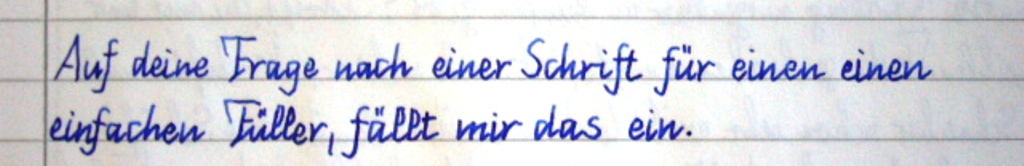 Auf deine Frage nach einer Schrift für einen einen
einfachen Füller, fällt mir das ein.